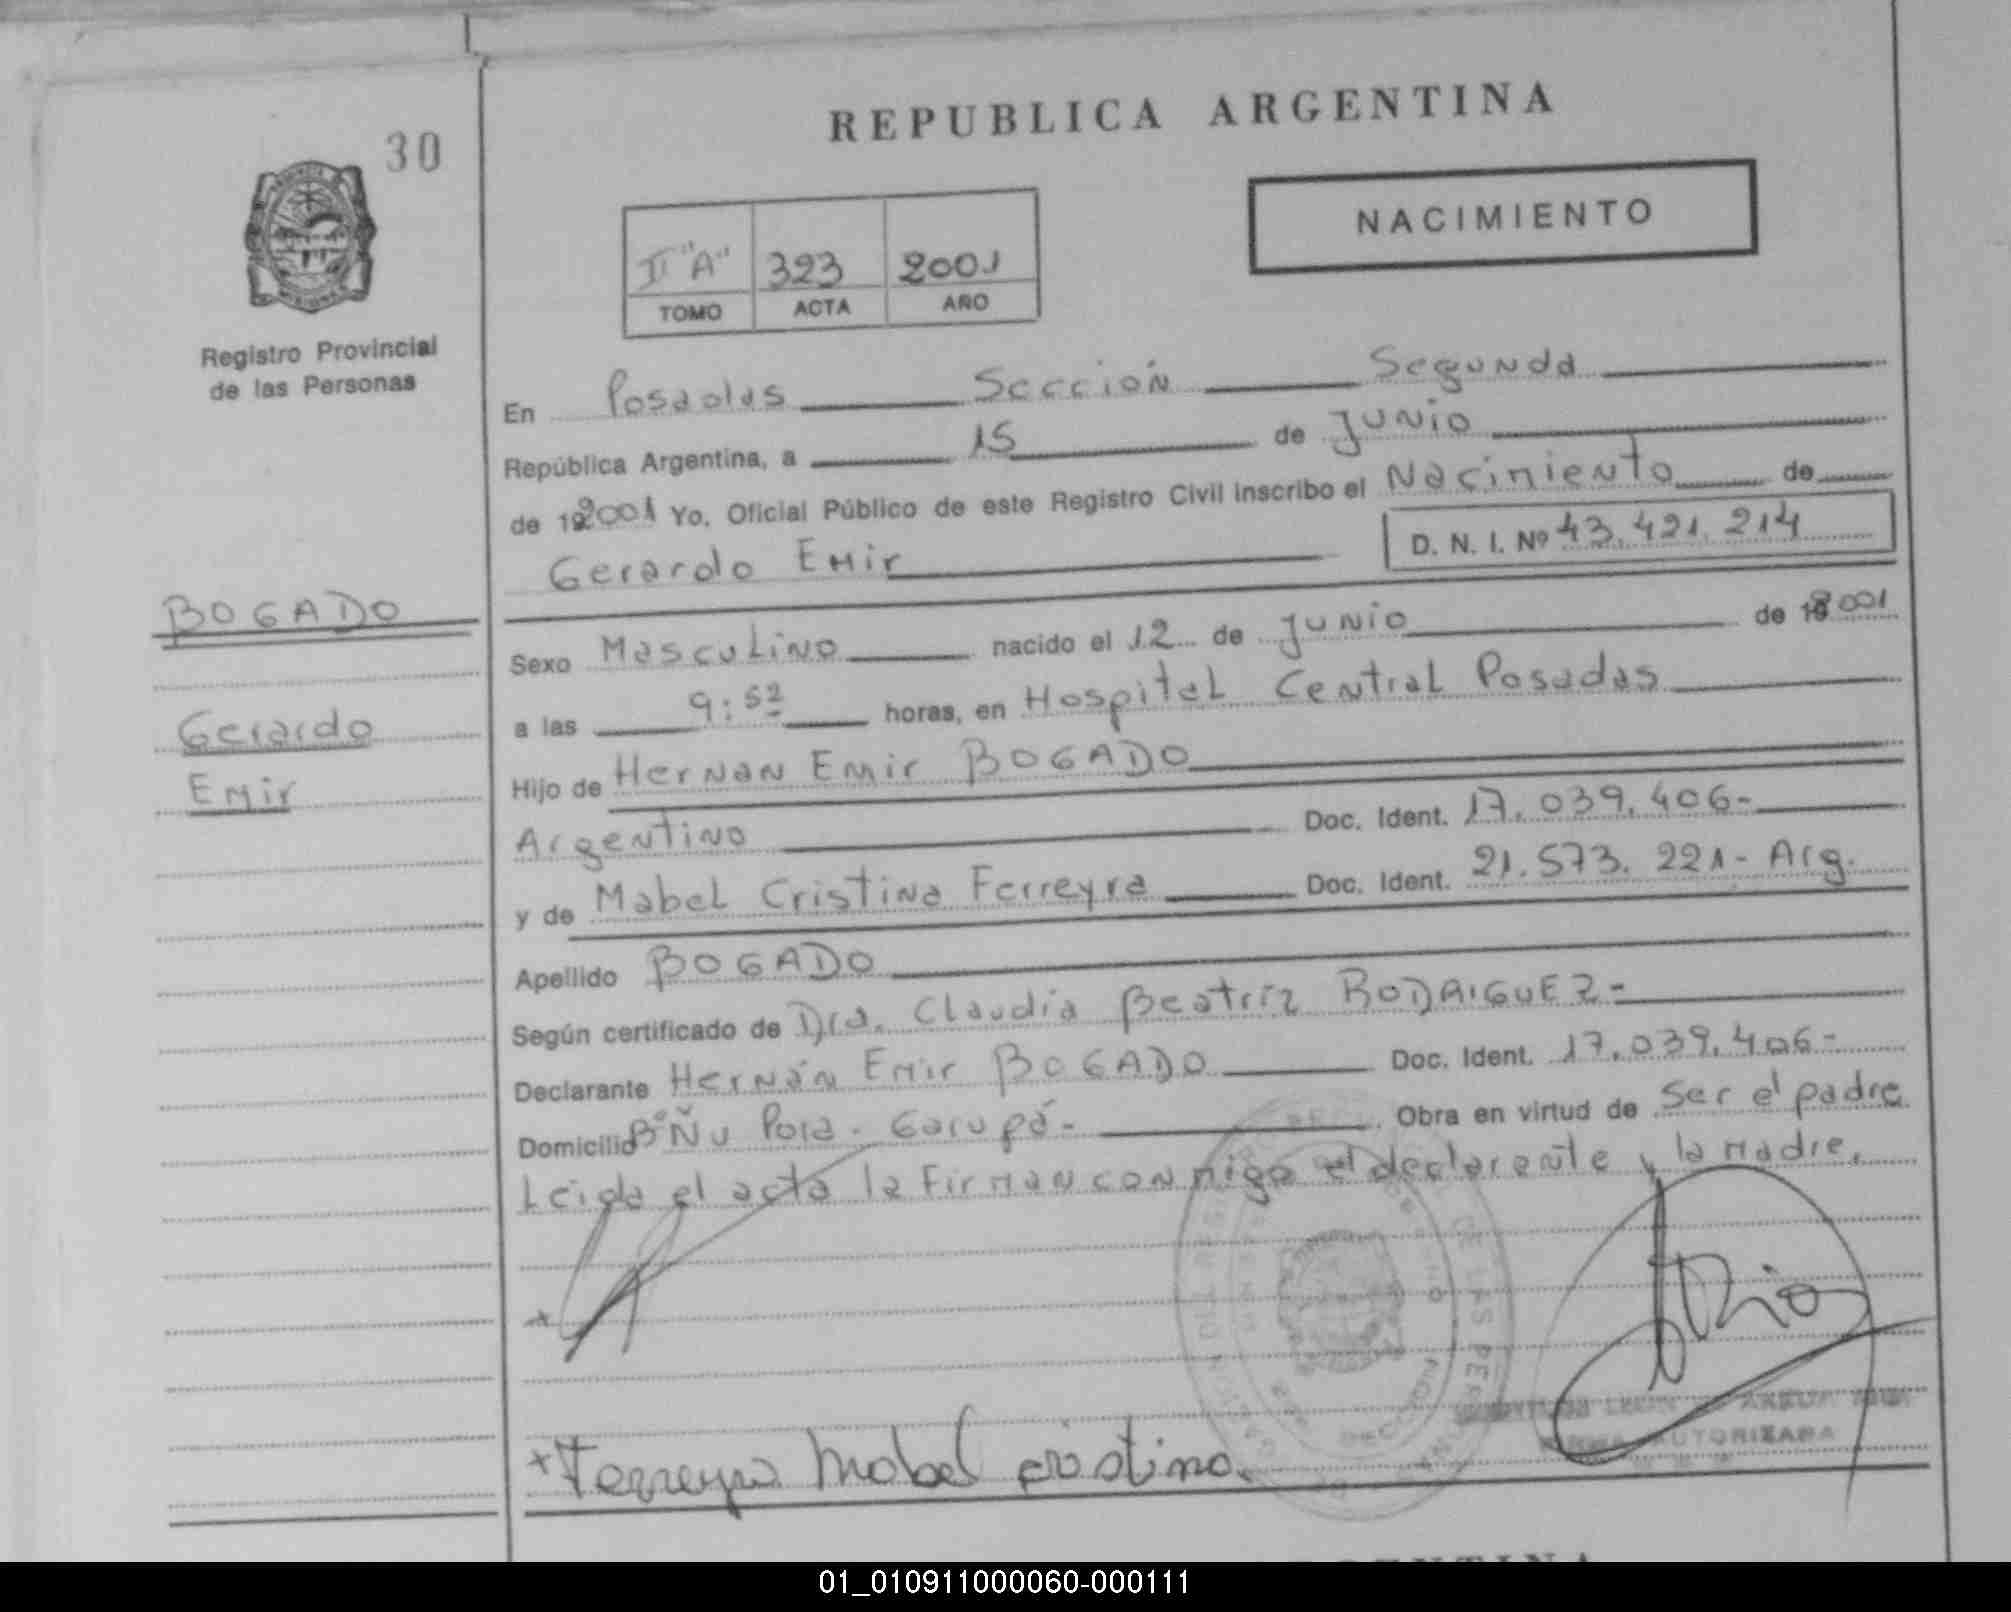 30
REPUBLICA ARGENTINA
NACIMIENTO
II "A" 323 2001
TOMO ACTA AÑO
Registro Provincial
de las Personas
En Posadas Sección Segunda
República Argentina, a 15 de Junio
de 192001 Yo, Oficial Público de este Registro Civil inscribo el Nacimiento de
Gerardo Emir D. N. I. Nº 43.421.214
BOGADO
Gerardo
Emir
Sexo Masculino nacido el 12 de Junio de 192001
a las 9:52 horas, en Hospital Central Posadas
Hijo de Hernan Emir BOGADO
Argentino Doc. Ident. 17.039.406-
y de Mabel Cristina Ferreyra Doc. Ident. 21.573.221- Arg.
Apellido BOGADO
Según certificado de Dra. Claudia Beatriz RODRIGUEZ-
Declarante Hernán Emir BOGADO Doc. Ident. 17.039.406-
Domicilio Bº Ñu Pora - Garupá- Obra en virtud de ser el padre
Leida el acta la firman conmigo el declarante y la madre.
x
x Ferreyra Mabel cristina.
FIRMA AUTORIZADA
01_010911000060-000111